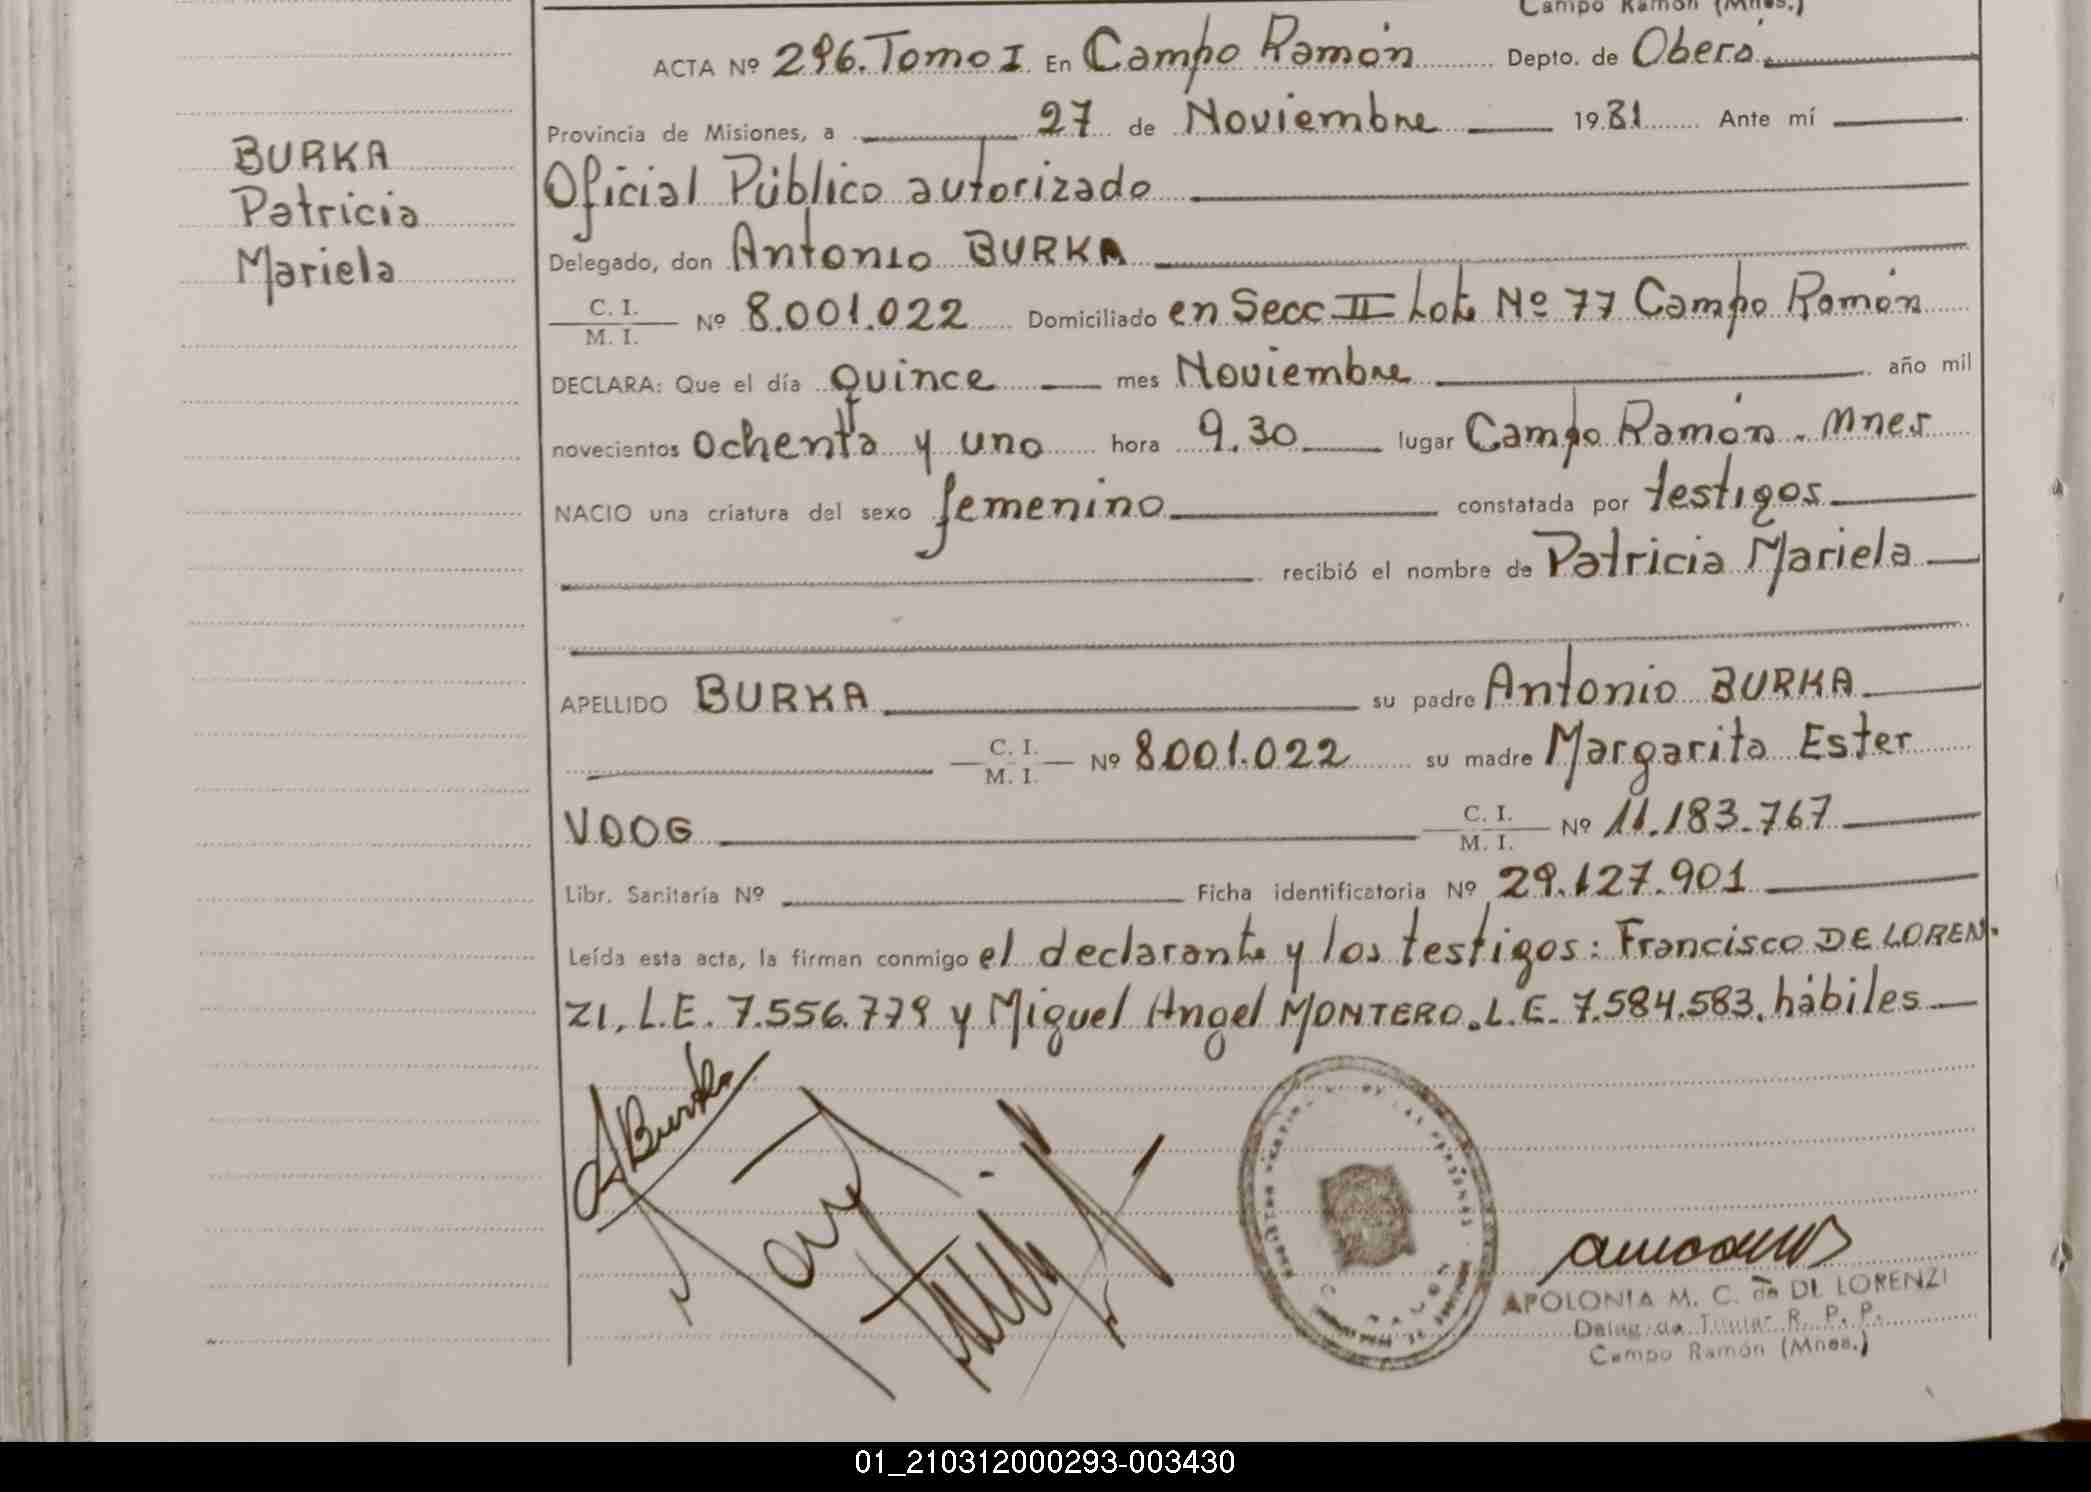 Campo Ramón (Mnes.)
ACTA Nº 296. Tomo I En Campo Ramón Depto. de Oberá
Provincia de Misiones, a 27 de Noviembre 1981 Ante mí
BURKA
Patricia
Mariela
Oficial Público autorizado
Delegado, don Antonio BURKA
C. I.
M. I. Nº 8.001.022 Domiciliado en Secc II Lote Nº 77 Campo Ramón
DECLARA: Que el día quince mes Noviembre año mil
novecientos ochenta y uno hora 9.30 lugar Campo Ramón - Mnes
NACIO una criatura del sexo femenino constatada por testigos
recibió el nombre de Patricia Mariela
APELLIDO BURKA su padre Antonio BURKA
C. I.
M. I. Nº 8.001.022 su madre Margarita Ester
VOOG C. I.
M. I. Nº 11.183.767
Libr. Sanitaria Nº Ficha identificatoria Nº 29.127.901
Leída esta acta, la firman conmigo el declarante y los testigos: Francisco DE LOREN-
ZI, L.E. 7.556.779 y Miguel Angel MONTERO. L.E. 7.584.583. hábiles
A Burka
APOLONIA M. C. de DE LORENZI
Delegada Titular R. P. P.
Campo Ramón (Mnes.)
01_210312000293-003430